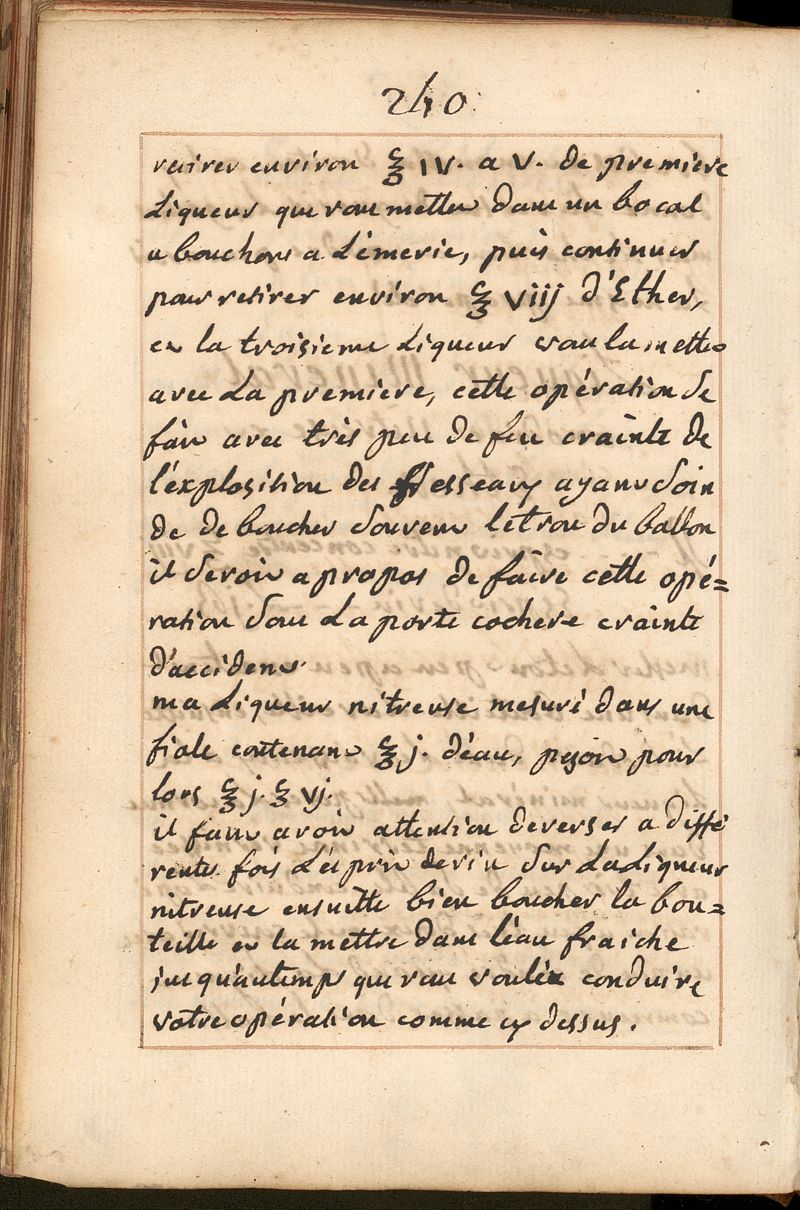 240
retirer environ ℥ IV. a V. de premiere
Liqueur que vous mettez dans un bocal
a bouchons a L'émerie, puis continuer
pour retirer environ ℥ viij d'Ether,
et la troisieme Liqueur vous la mettez
avec La premiere, cette opération se
fait avec très peu de feu crainte de
l'explosition des vesseaux ayant soin
de deboucher souvent le trou du ballon
il seroit apropos de faire cette opé=
ration sous La porte cochere crainte
d'accident
ma Liqueur nitreuse mesuré dans une
fiole contenant ℥ j. d'éau, pesoit pour
lors ℥ j. ʒ vj.
il faut avoir attention deverser a diffé
rentes fois L'ésprit devin sur La Liqueur
nitreuse ensuitte bien boucher la bou=
teille et la mettre dans l'éau fraiche
jusqu'autemps que vous vouléz conduire
votre opération comme cy dessus.